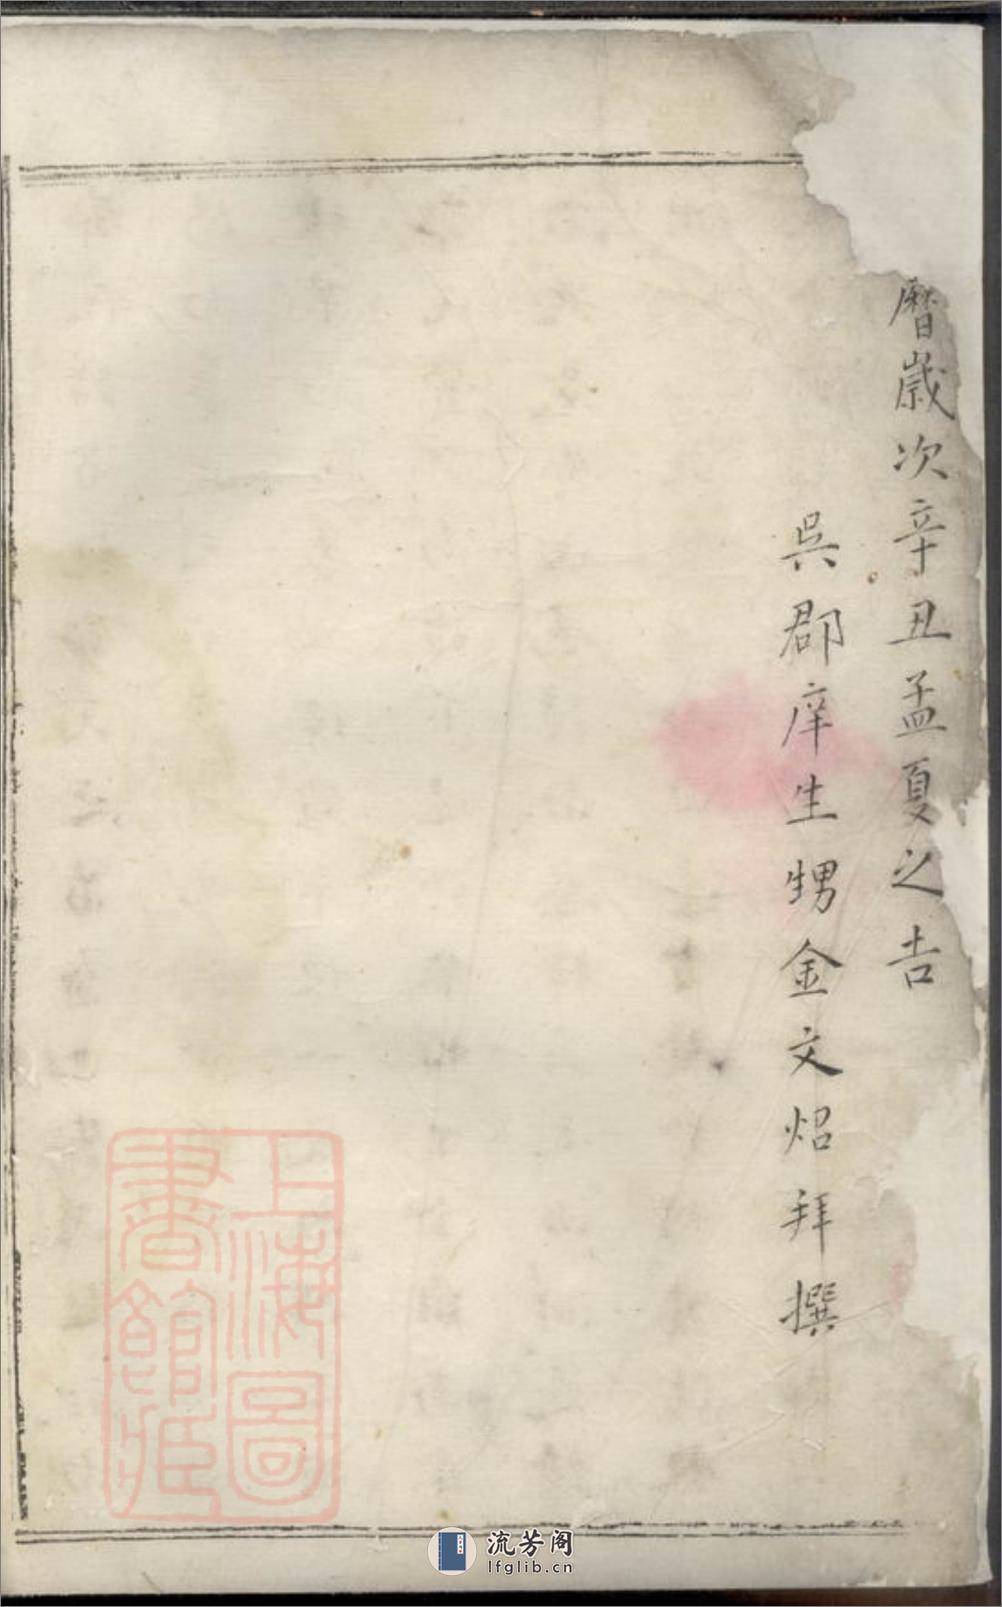 曆歲次辛丑孟夏之吉
吳郡庠生甥金文炤拜撰
上海圖書館藏
流芳阁
lfglib.cn